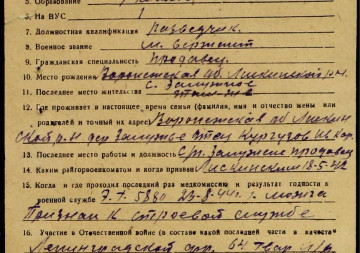 5. Образование
6. На ВУС 1
7. Должностная квалификация разведчик.
8. Военное звание м. сержант
9. Гражданская специальность Продавец.
10. Место рождения Воронежская об. Лискинский р-н
с. Залужное
11. Последнее место жительства
12. Где проживает в настоящее время семья (фамилия, имя и отчество жены или
родителей и точный их адрес) Воронежская об Лискин
ской р. н Залужье отец
13. Последнее место работы и должность с/п. Залужное продавец
14. Каким райгорвоенкоматом и когда призван Лискинским 18-5-42
15. Когда и где проходил последний раз медкомиссию и результат годности к
военной службе 23-8-44г. г.
Признан к строевой службе
16. Участие в Отечественной войне (в составе какой последней части в качестве
Ленинградской фр. 64 Гвар